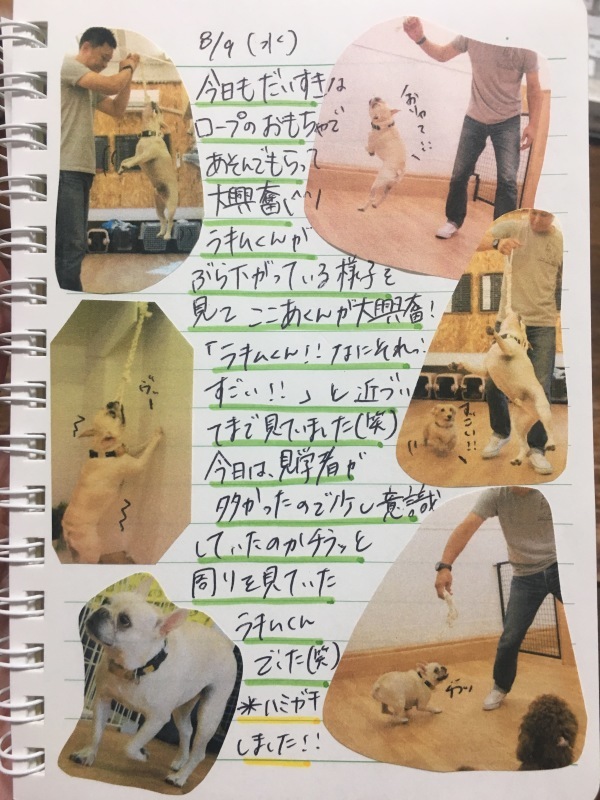 8/9 (水)
今日もだいすきな
ロープのおもちゃで
あそんでもらって
大興奮(^^)
ラキムくんが
ぶら下がっている様子を
見て ここあくんが大興奮!
「ラキムくん!! なにそれっ
すごい!!」と近づい
てまで見ていました(笑)
今日は、見学者が
多かったので少し意識
していたのかチラッと
周りを見ていた
ラキムくん
でした(笑)
*ハミガキ
しました!!
おりゃて!!
ヴー
すごい!!